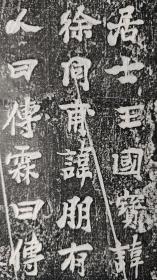 居士王國賓諱
徐甫諱朋有
人曰傳霖曰傳